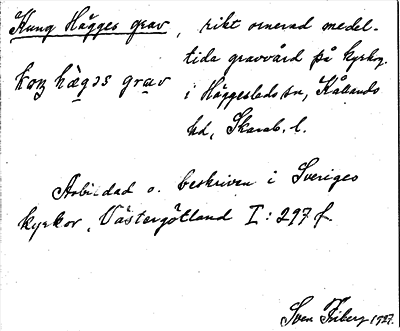 Kung Hägges grav, rikt ornerad medel-
tida gravvård på kyrkog.
kaŋ hàgəs grav
i Häggesleds sn, Kållands
hd, Skarab. l.
Avbildad o. beskriven i Sveriges
kyrkor, Västergötland I: 297 f.
Sven Friberg 1927.